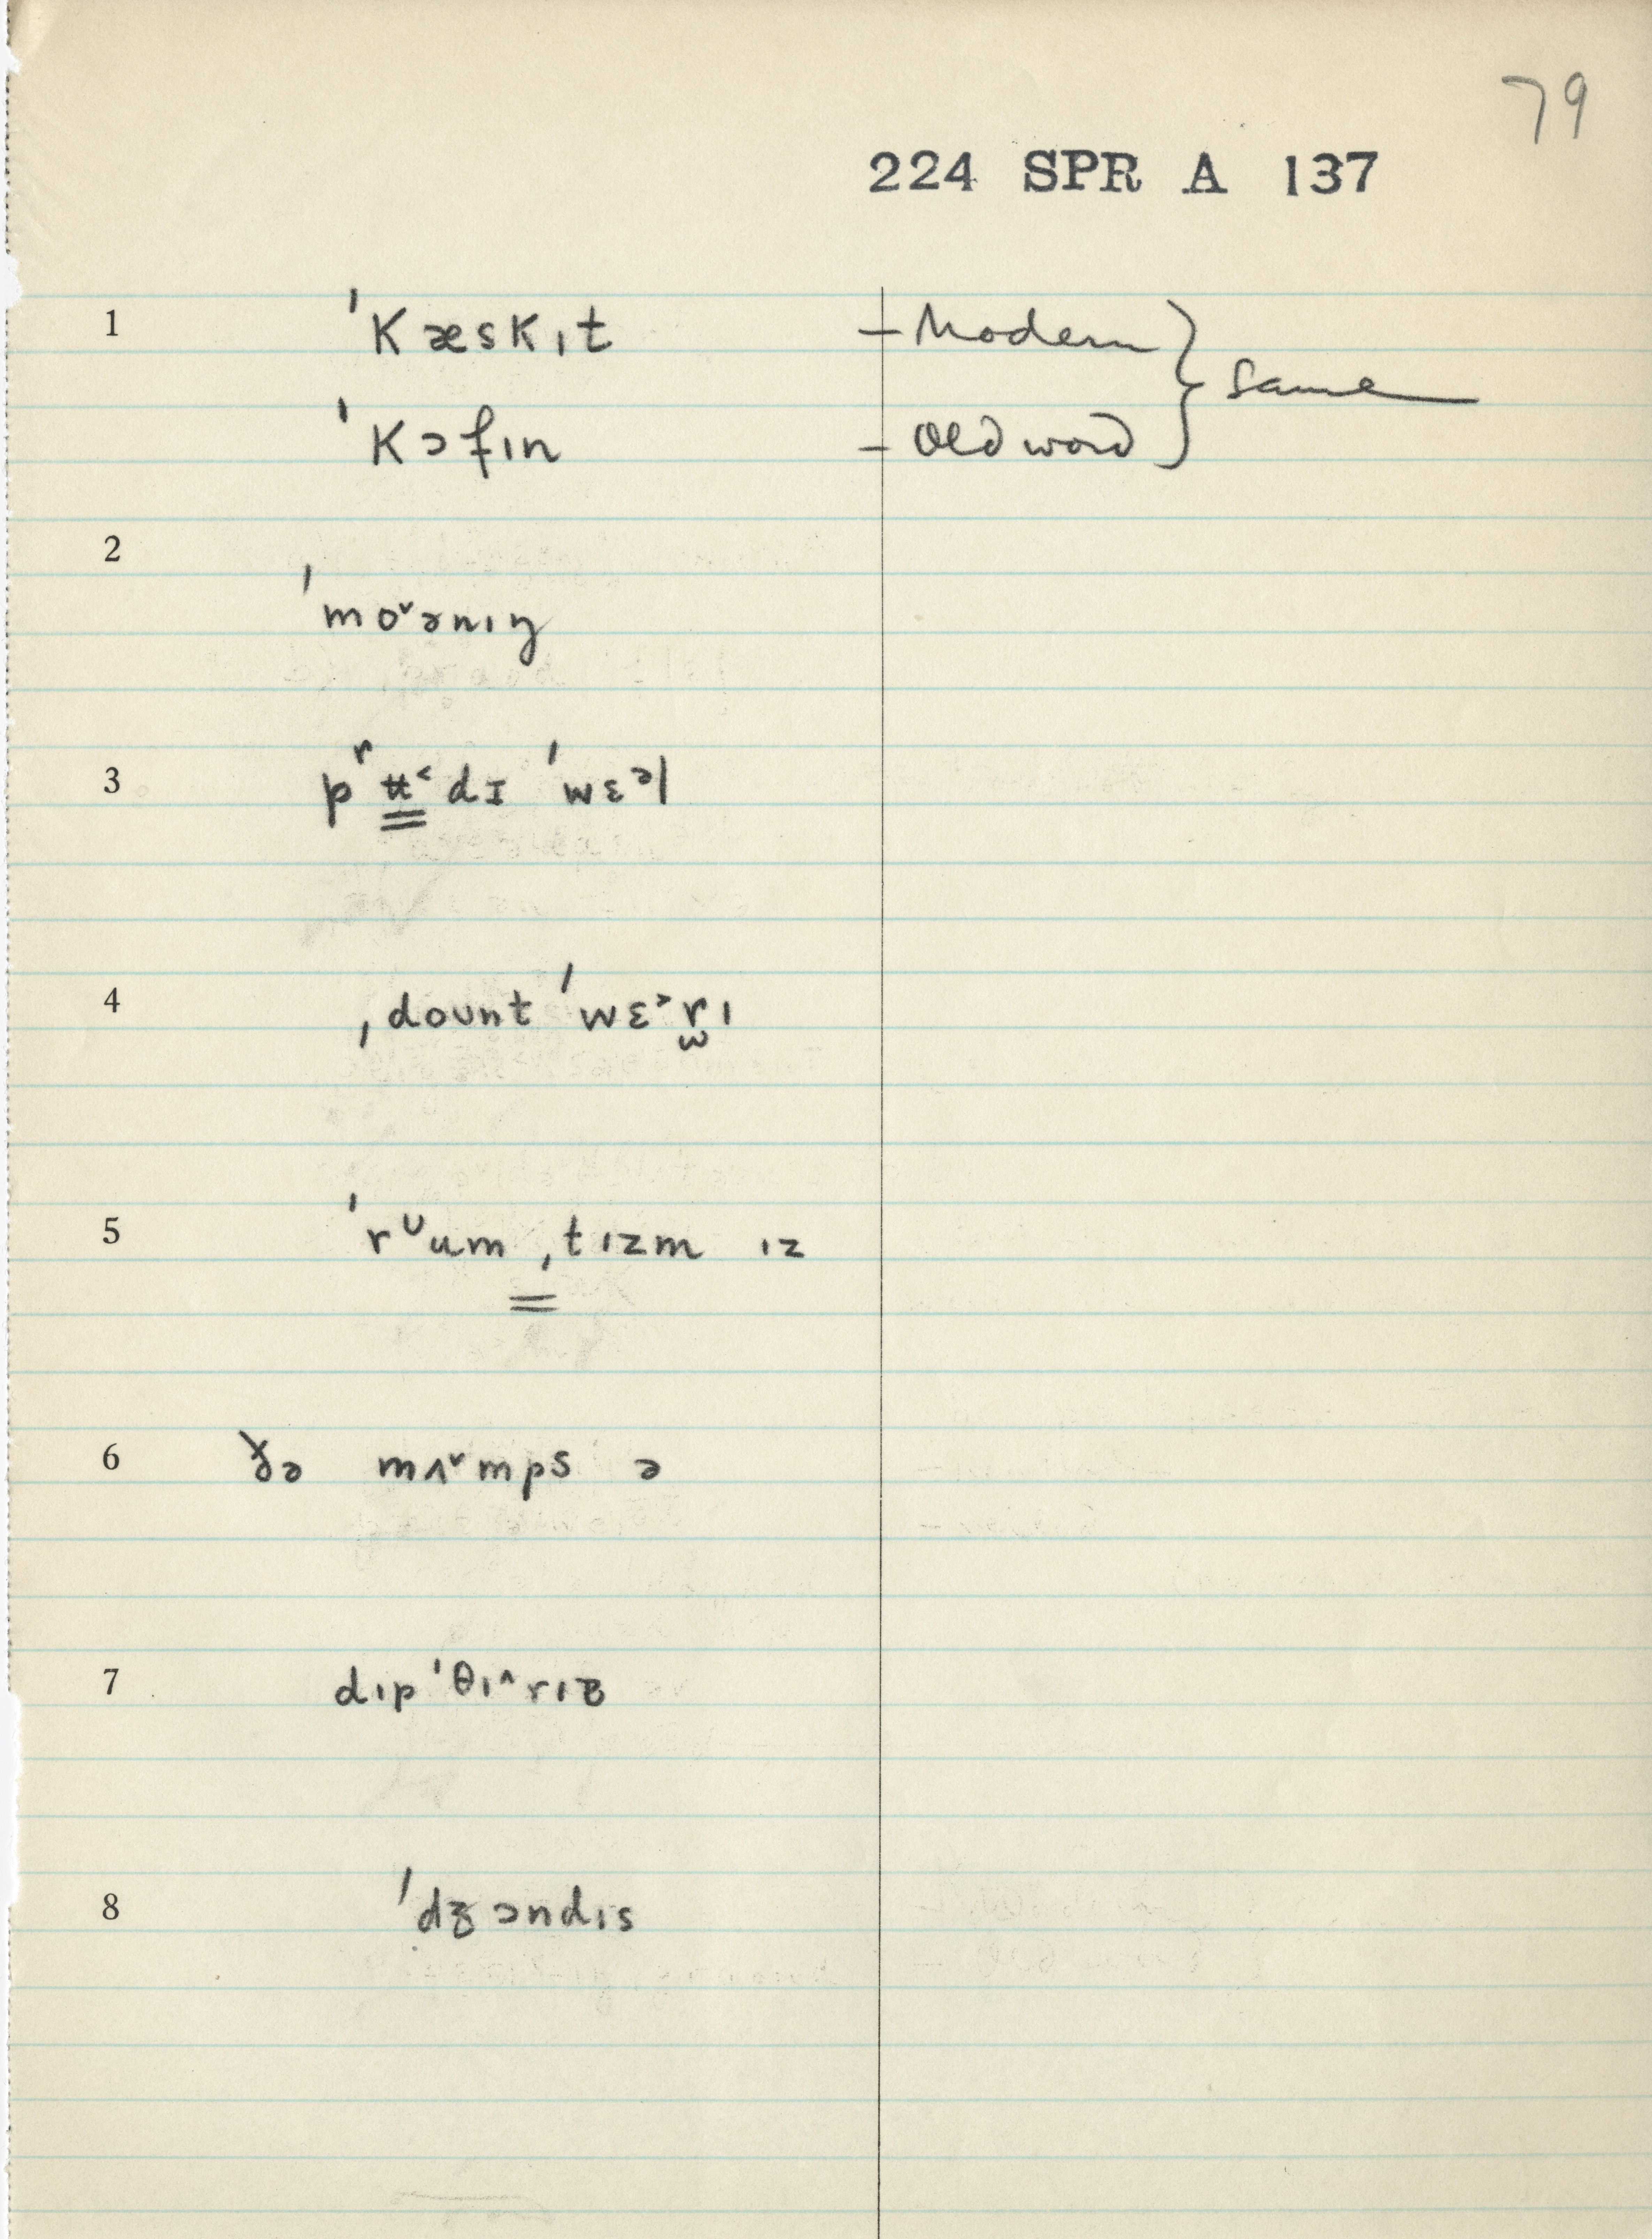 79
224 SPR A 137
1 ˈkæskɪt – Modern } Same
ˈkɔfɪn – Old word
2
ˈmo˅ənɪŋ
3 pʳʉ˂dɪ ˈwɛᵊl
4 ˌdount ˈwɛᵊrɪ
5 ˈrᶷumˌtɪzm ɪz
6 ðə mʌ˅mps ə
7 dɪpˈθɪ^rɪə
8 ˈdʒɔndɪs